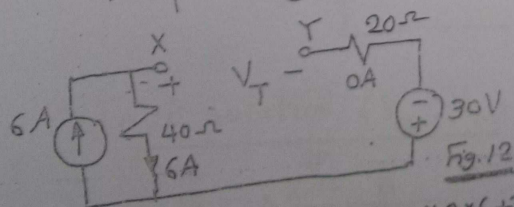 X
Y
20Ω
+
V_T
-
0A
6A
40Ω
-
+
30V
6A
Fig. 12